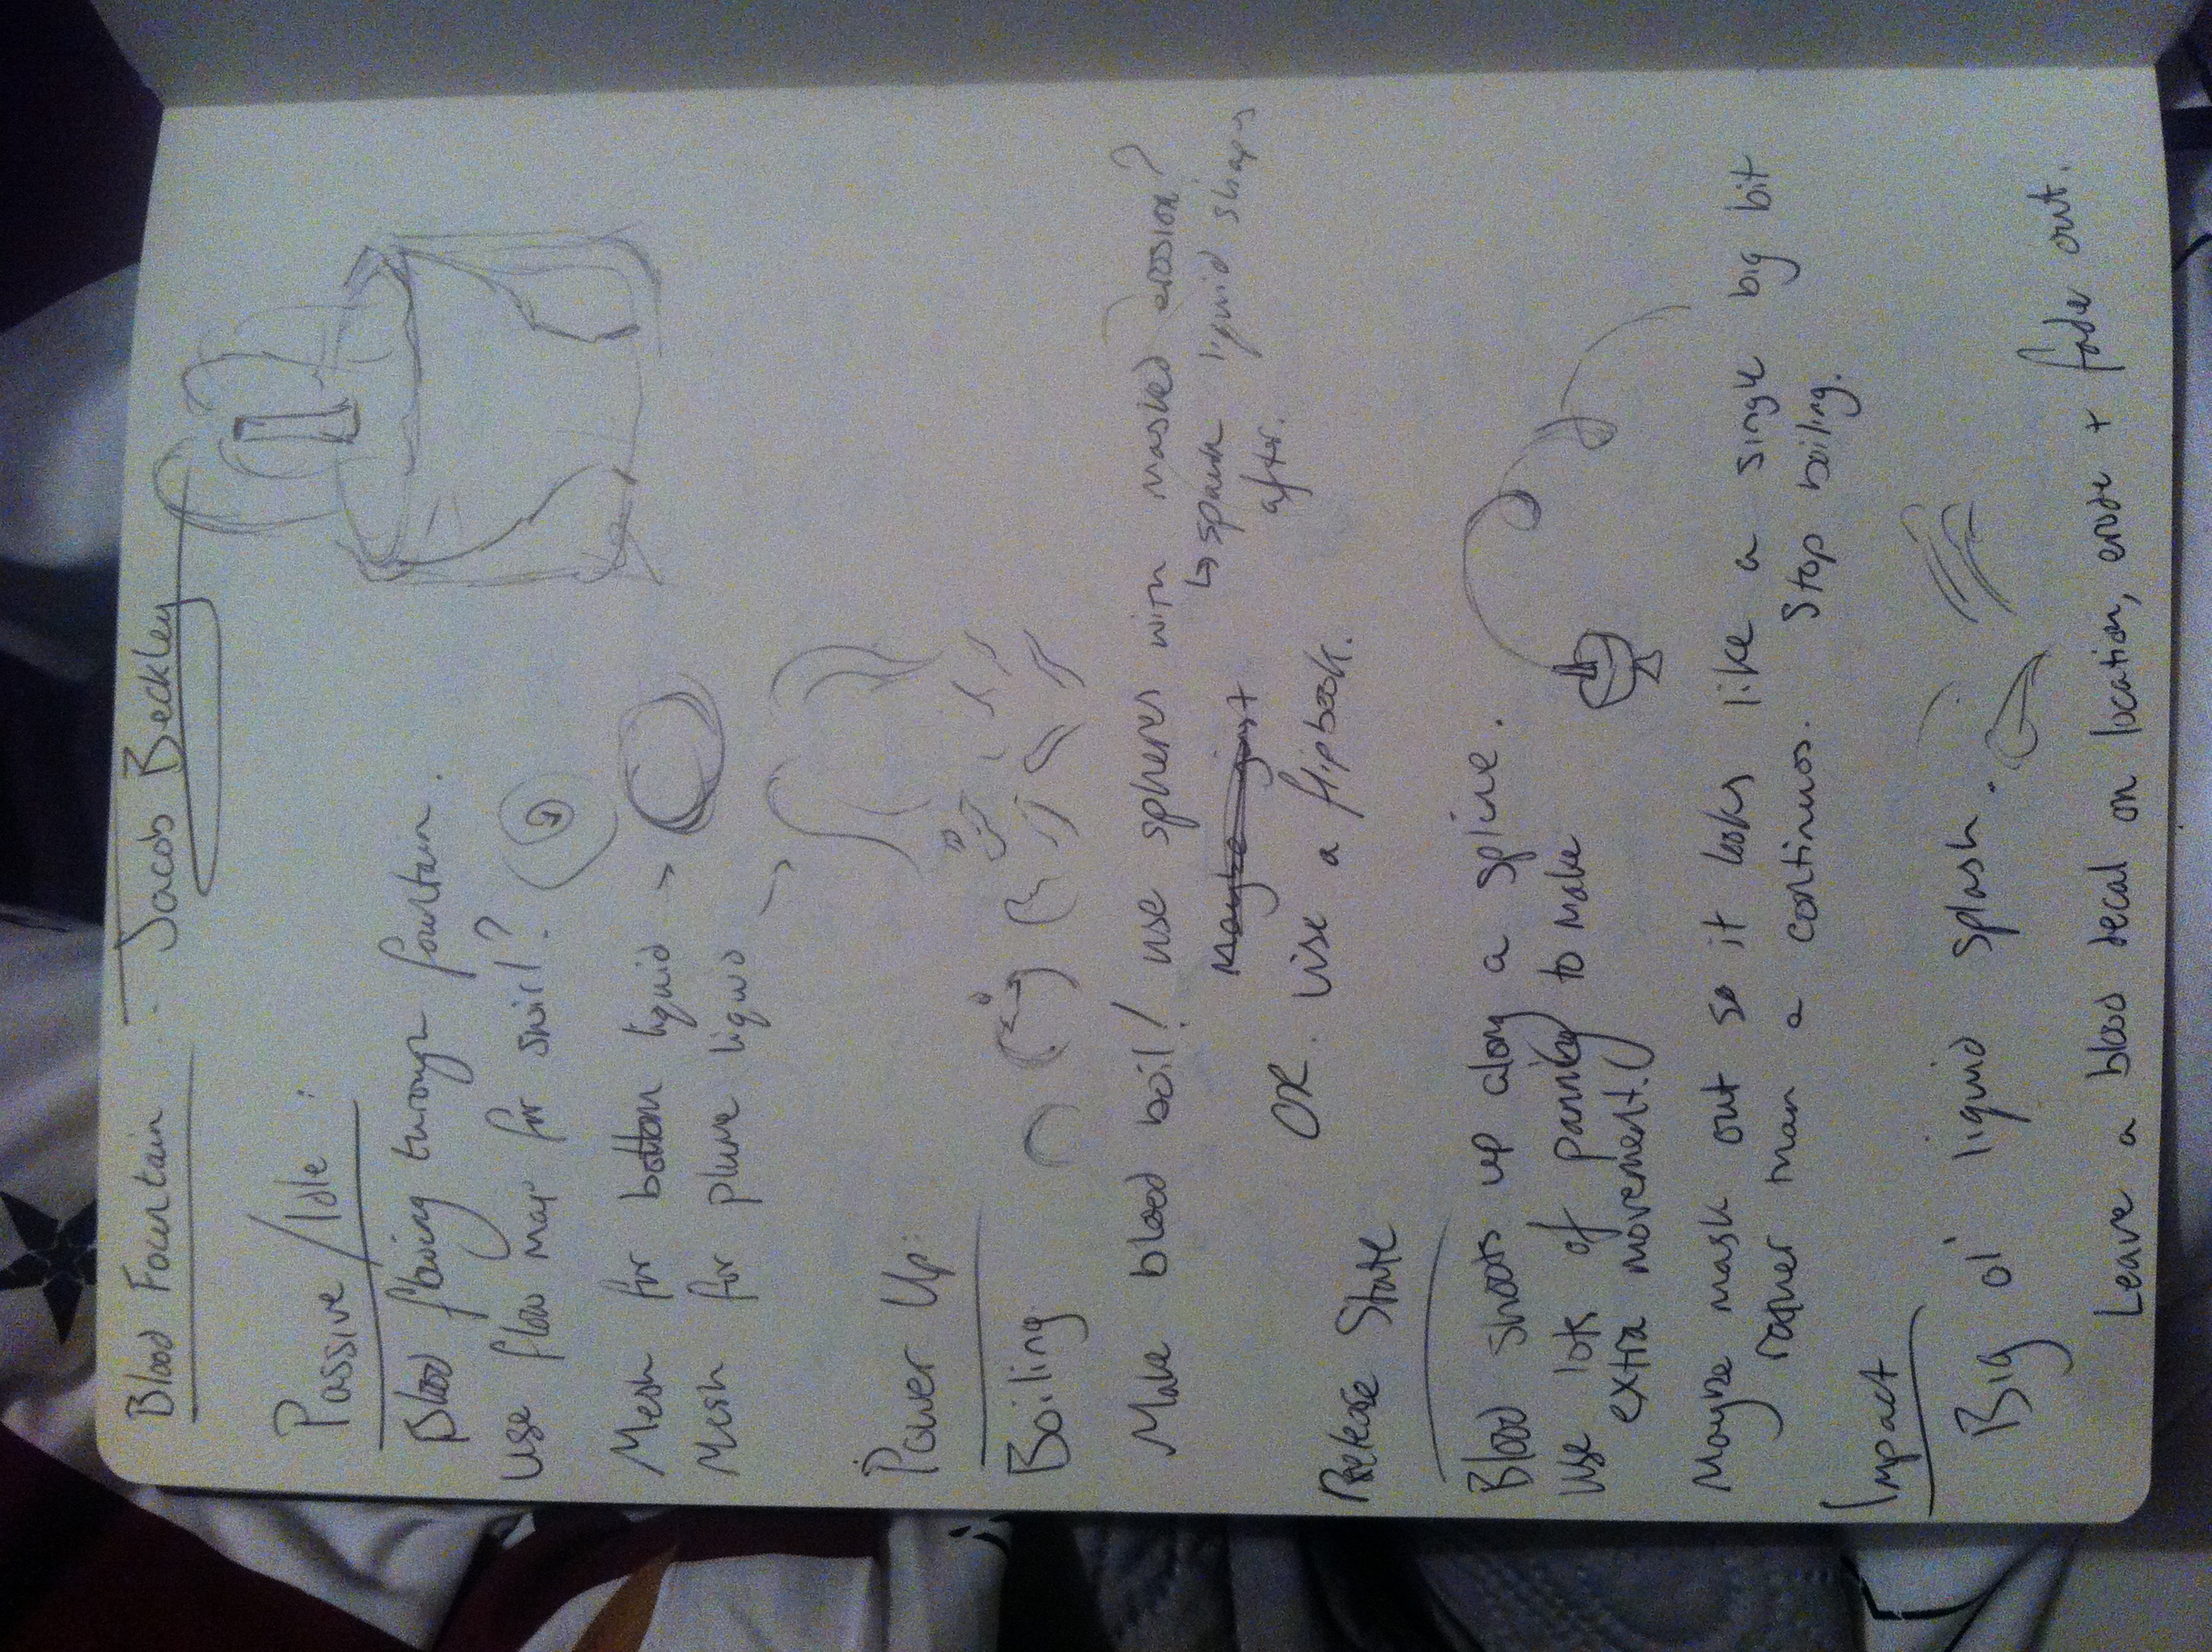 Blood Fountain
Jacob Beckley
Passive/Idle:
Blood flowing through fountain.
Use flow map for swirl?
Mesh for bottom liquid →
Mesh for plume liquid →
Power Up:
Boiling
Make blood boil! use spheres with masked erosion?
↳ spawn liquid shapes
after.
Maybe just
OR. Use a flipbook.
Release State
Blood shoots up along a spline.
Use lots of panning to make
extra movement.
Maybe mask out so it looks like a single big bit
rather than a continuos. Stop boiling.
Impact
Big ol' liquid splash.
Leave a blood decal on location, erode + fade out.